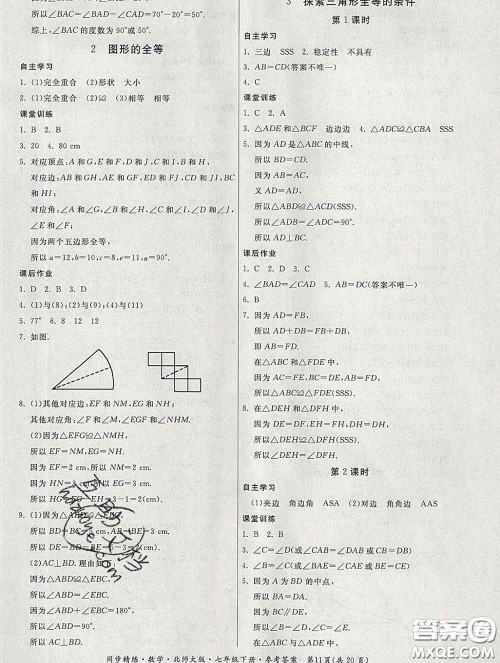 所以∠BAC=∠BAD-∠CAD=70°-20°=50°.
综上,∠BAC的度数为90°或50°.
2 图形的全等
自主学习
1. (1)完全重合 (2)形状 大小
2. (1)完全重合 (2)≌ (3)相等 相等
课堂训练
1. B 2. B
3. 20 4. 80 cm
5. 对应顶点:A和G,E和F,D和J,C和I,B和H;
对应边:AB和GH,AE和GF,ED和FJ,CD和JI,BC和HI;
对应角:∠A和∠G,∠B和∠H,∠C和∠I,∠D和∠J,∠E和∠F.
因为两个五边形全等,
所以a=12,b=10,c=8,e=11,α=90°.
课后作业
1. C 2. B 3. D
4. (1)与(8);(2)与(9);(4)与(11)
5. 77° 6. 8 12 12
7. 如图.
8. (1)其他对应边:EF和NM,EG和NH,
其他对应角:∠F和∠M,∠EGF和∠NHM.
(2)因为△EFG≌△NMH,
所以EF=NM,EG=NH.
因为EF=2 cm,所以NM=2 cm.
因为EG=NH=3 cm,
所以HG=EG-EH=3-1=2(cm).
9. (1)因为△ABD≌△EBC,
所以BD=BC=5 cm,AB=BE=3 cm.
所以DE=BD-BE=5-3=2(cm).
(2)AC⊥BD.理由如下:
因为△ABD≌△EBC,
所以∠ABD=∠EBC.
因为∠ABD+∠EBC=180°,
所以∠ABD=∠EBC=90°.
所以AC⊥BD.
3 探索三角形全等的条件
第1课时
自主学习
1. 三边 SSS 2. 稳定性 不具有
3. AB=CD(答案不唯一)
4. C
课堂训练
1. B 2. B
3. △ADE和△BCF 边边边 4. △ADC≌△CBA SSS
5. 因为AD是△ABC的中线,
所以BD=CD.
因为AB=AC,
又AD=AD,
所以△ABD≌△ACD(SSS).
所以∠ADB=∠ADC=90°.
所以AD⊥BC.
课后作业
1. C 2. D 3. A
4. ∠BAD=∠CAD 5. AB=DC(答案不唯一)
6. B
7. 因为AD=FB,
所以AD+DB=FB+DB.
即AB=FD.
在△ABC与△FDE中,
因为AC=FE,AB=FD,BC=DE,
所以△ABC≌△FDE(SSS).
8. 在△DEH和△DFH中,
因为DE=DF,EH=FH,DH=DH,
所以△DEH≌△DFH(SSS).
所以∠DEH=∠DFH.
第2课时
自主学习
1. (1)夹边 角边角 ASA (2)对边 角角边 AAS
课堂训练
1. B 2. B
3. ∠C=∠D(或∠BAC=∠BAD或CB=DB)
4. ∠B=∠C(或∠BAE=∠CAD或BD=CE)
5. 因为A为BD的中点,
所以BA=DA.
因为AC∥DE,
所以∠BAC=∠D.
同步精练·数学·北师大版·七年级下册·参考答案 第11页(共20页)